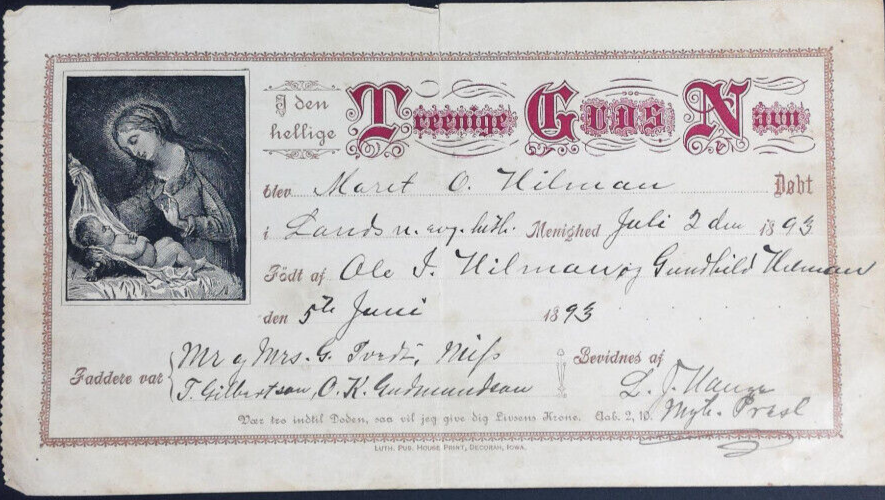 I den hellige Treenige Guds Navn
blev Maret O. Hilman Døbt
i Lands n. evg. luth. Menighed Juli 2 den 1893
Födt af Ole I. Hilman og Gundhild Hilman
den 5te Juni 1893
Faddere var Mr og Mrs. G. Tvedt, Miss
T. Gilbertson, O. K. Gudmundson
Bevidnes af
L. J. Hauge
Præst
Vær tro indtil Døden, saa vil jeg give dig Livsens Krone. Aab. 2, 10.
LUTH. PUB. HOUSE PRINT, DECORAH, IOWA.